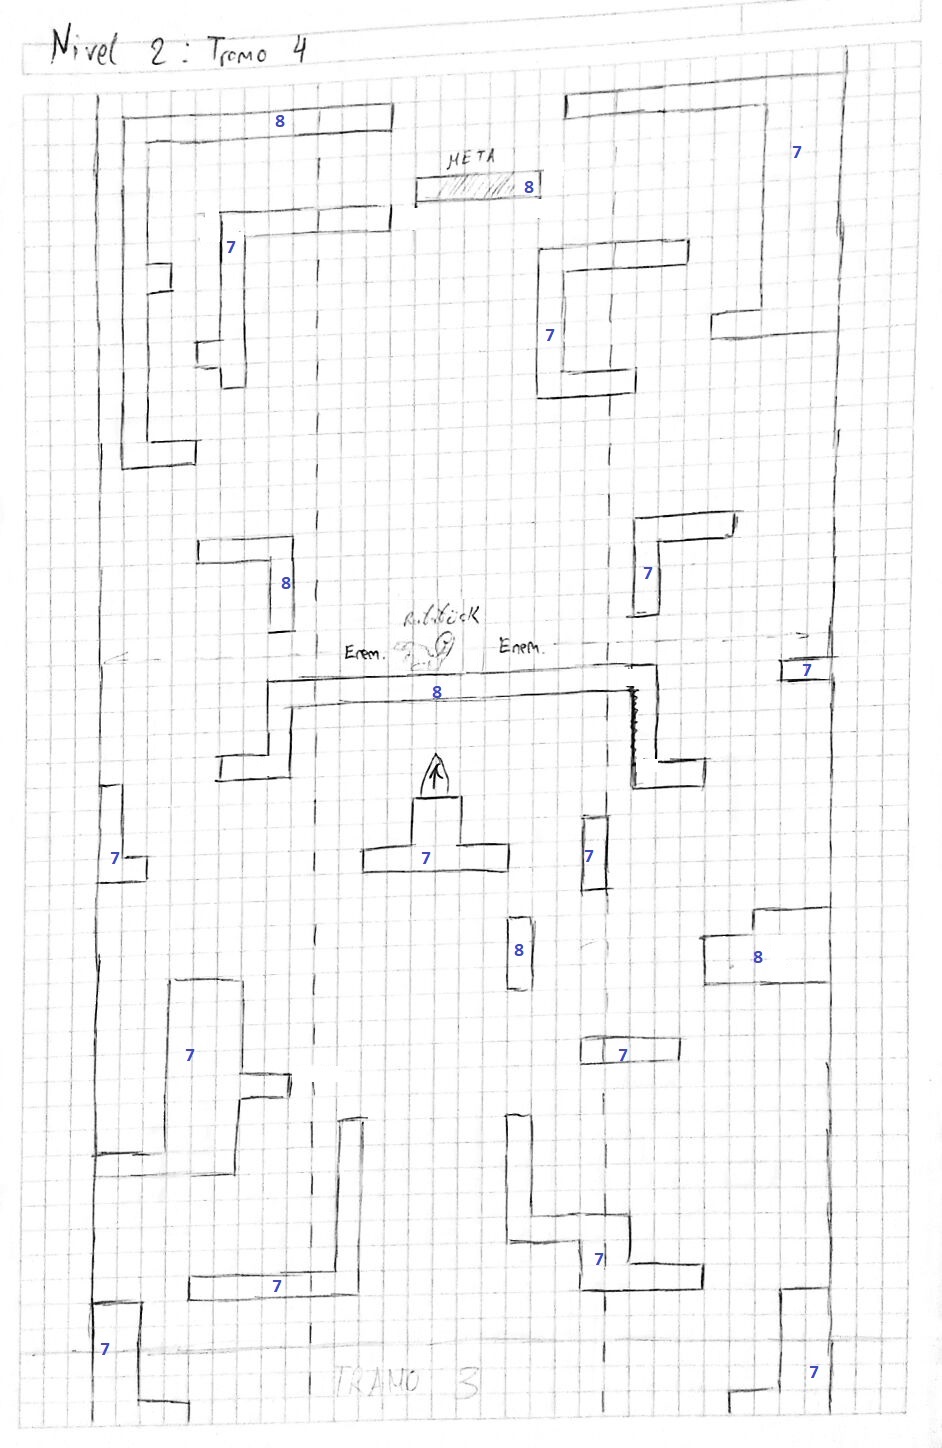 Nivel 2: Tramo 4
8
7
META
8
7
7
8
7
Enem.
Enem.
7
8
7
7
7
8
8
7
7
7
7
7
7
TRAMO 3